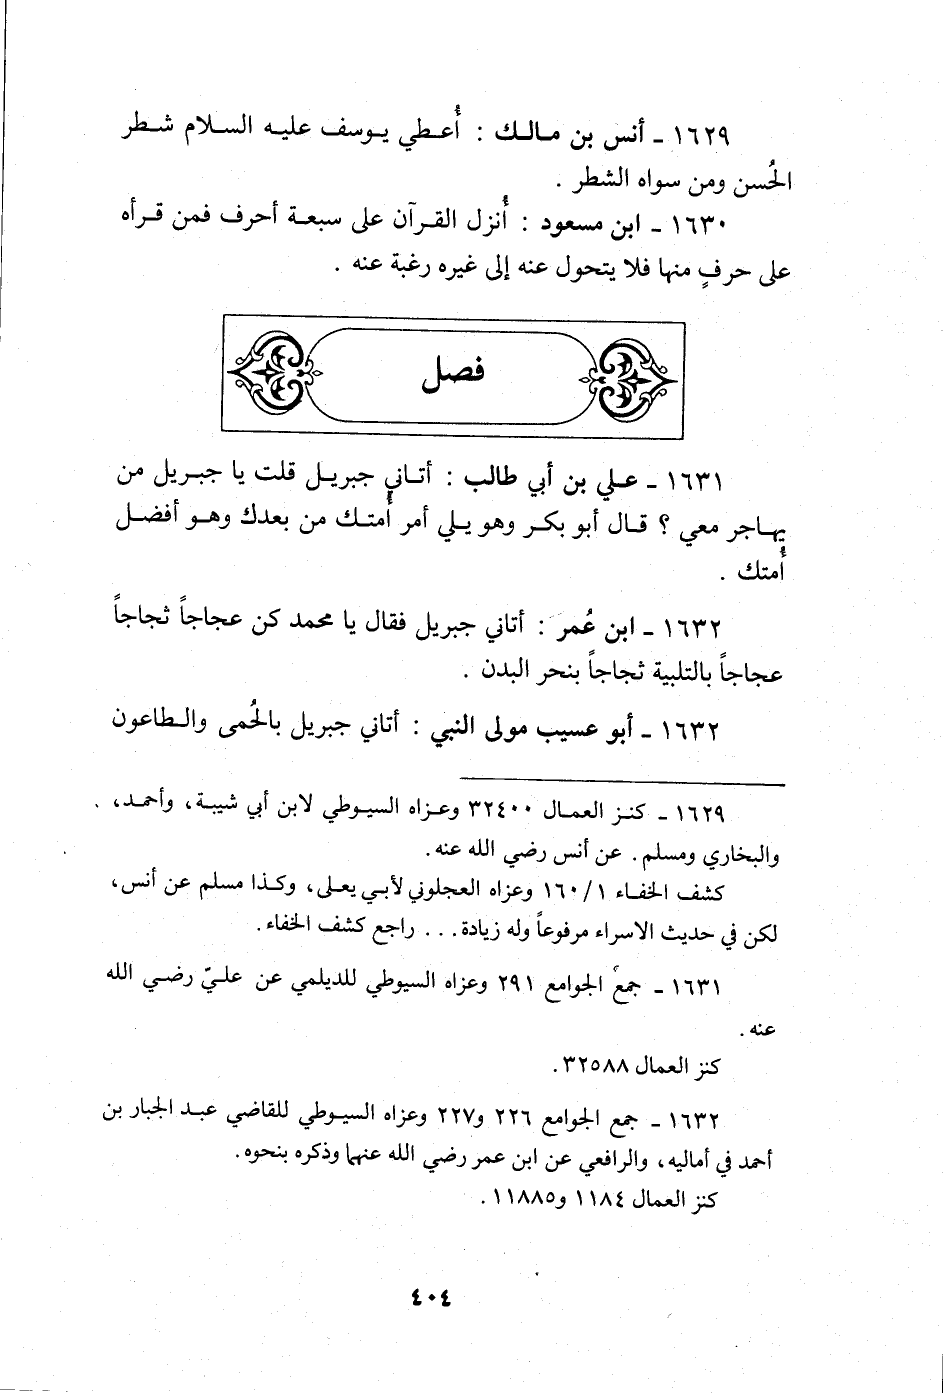 ١٦٢٩ ـ أنس بن مالك : أُعطي يوسف عليه السلام شطر
الحُسن ومن سواه الشطر .
١٦٣٠ ـ ابن مسعود : أُنزل القرآن على سبعة أحرف فمن قرأه
على حرفٍ منها فلا يتحول عنه إلى غيره رغبة عنه .
فصل
١٦٣١ ـ علي بن أبي طالب : أتاني جبريل قلت يا جبريل من
يهاجر معي ؟ قال أبو بكر وهو يلي أمر أُمتك من بعدك وهو أفضل
أُمتك .
١٦٣٢ ـ ابن عُمر : أتاني جبريل فقال يا محمد كن عجاجاً ثجاجاً
عجاجاً بالتلبية ثجاجاً بنحر البدن .
١٦٣٢ ـ أبو عسيب مولى النبي : أتاني جبريل بالحُمى والطاعون
١٦٢٩ ـ كنز العمال ٣٢٤٠٠ وعزاه السيوطي لابن أبي شيبة، وأحمد،
والبخاري ومسلم. عن أنس رضي الله عنه.
كشف الخفاء ١٦٠/١ وعزاه العجلوني لأبي يعلى، وكذا مسلم عن أنس،
لكن في حديث الاسراء مرفوعاً وله زيادة... راجع كشف الخفاء.
١٦٣١ ـ جمع الجوامع ٢٩١ وعزاه السيوطي للديلمي عن عليّ رضي الله
عنه.
كنز العمال ٣٢٥٨٨.
١٦٣٢ ـ جمع الجوامع ٢٢٦ و٢٢٧ وعزاه السيوطي للقاضي عبد الجبار بن
أحمد في أماليه، والرافعي عن ابن عمر رضي الله عنهما وذكره بنحوه.
كنز العمال ١١٨٤ و١١٨٨٥.
٤٠٤